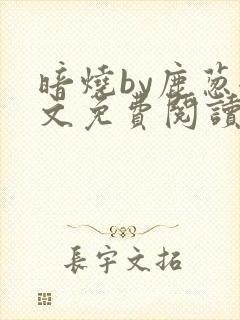 暗燒by鹿葱
文免費閱讀
長宇文拓